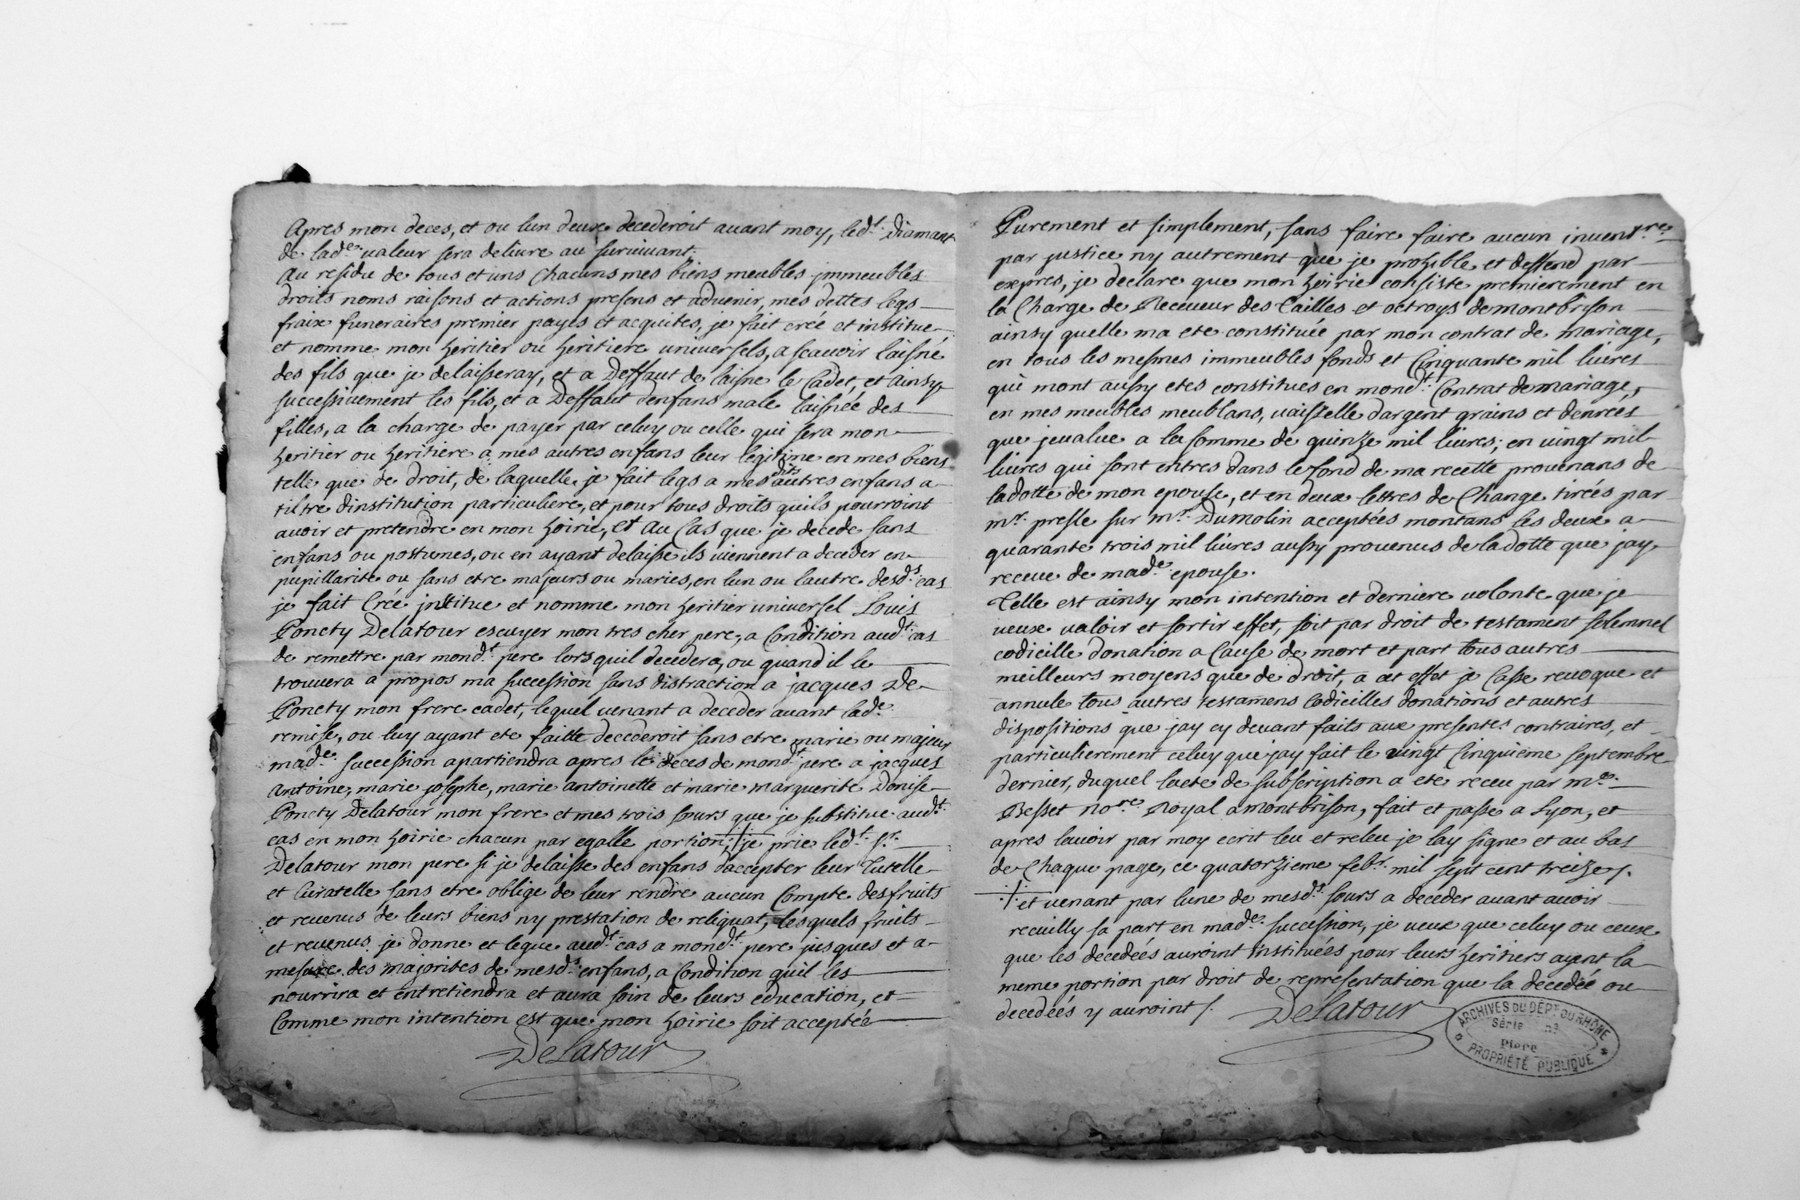 Apres mon deces, et ou lun deux decederoit avant moy, ledt. Diamant
de lade. valeur sera delivré au survivant,
Au residu de tous et uns chacuns mes biens meubles immeubles
droits noms raisons et actions presens et advenir, mes dettes legs
fraix funeraires premier payés et acquités, je fait creé et institue
et nomme mon heritier ou heritiere universels, a scavoir laisné
des fils que je delaisseray, et a Deffaut de laisne le Cadet, et ainsy
successivement les fils, et a Deffaut denfans male laisnée des
filles, a la charge de payer par celuy ou celle qui sera mon
heritier ou heritiere a mes autres enfans leur legitime en mes biens
telle que de droit, de laquelle je fait legs a mesdits autres enfans a
tiltre dinstitution particuliere, et pour tous droits quils pourroint
avoir et pretendre en mon hoirie, et au Cas que je decede sans
enfans ou postumes, ou en ayant delaisse ils viennent a deceder en
pupillarité ou sans etre majeurs ou mariés, en lun ou lautre desds. cas
je fait Creé institue et nomme mon heritier universel Louis
Poncty Delatour escuyer mon tres cher pere, a Condition audt. cas
de remettre par mondt. pere lorsquil decedera, ou quand il le
trouvera a propos ma succession sans distraction a jacques De
Poncty mon frere cadet, lequel venant a deceder avant lade.
remise, ou luy ayant ete faitte decederoit sans etre marié ou majeur
made. succession apartiendra apres le deces de mondt. pere a jacques
Antoine, marie josephe, marie antoinette et marie marguerite Donise
Poncty Delatour mon frere et mes trois sœurs que je substitue audt.
cas en mon hoirie chacun par egalle portion, je prie ledt. sr.
Delatour mon pere si je delaisse des enfans daccepter leur Tutelle
et Curatelle sans etre obligé de leur rendre aucun Compte des fruits
et revenus de leurs biens ny prestation de reliquat, lesquels fruits
et revenus je donne et legue audt. cas a mondt. pere jusques et a
mesure des majorités de mesds. enfans, a Condition quil les
nourrira et entretiendra et aura soin de leurs education, et
Comme mon intention est que mon hoirie soit acceptée
DeLatour
Purement et simplement, sans faire faire aucun inventre.
par justice ny autrement que je prohible et deffend par
expres, je declare que mon hoirie consiste premierement en
la Charge de Receveur des Tailles et octroys de montbrison
ainsy quelle ma ete constituée par mon contrat de mariage,
en tous les mesmes immeubles fonds et Cinquante mil livres
qui mont aussy etes constitués en mondt. Contrat de mariage,
en mes meubles meublans, vaisselle dargent grains et denrées
que jevalue a la somme de quinze mil livres; en vingt mil
livres qui sont entrés dans le fond de ma recette provenans de
ladotte de mon epouse, et en deux lettres de Change tirées par
mr. presle sur mr. Dumolin acceptées montans les deux a
quarante trois mil livres aussy provenus de ladotte que jay
receue de made. epouse.
Telle est ainsy mon intention et derniere volonté que je
veux valoir et sortir effet, soit par droit de testament solemnel
codicille donation a Cause de mort et part tous autres
meilleurs moyens que de droit, a cet effet je Casse revoque et
annule tous autres testamens Codicilles donations et autres
dispositions que jay cy devant faits aux presentes contraires, et
particulierement celuy que jay fait le vingt Cinquieme septembre
dernier, duquel lacte de subscription a ete receu par me.
Besset nore. Royal a montbrison, fait et passé a Lyon, et
apres lavoir par moy ecrit leu et releu je lay signé et au bas
de Chaque page, ce quatorzieme febr. mil sept cent treize.
et venant par lune de mesds. sœurs a deceder avant avoir
recuilly sa part en made. succession, je veux que celuy ou ceux
que les decedées auroint instituées pour leurs heritiers ayent la
meme portion par droit de representation que la decedée ou
decedées y auroint.
DeLatour
ARCHIVES DU DÉPT DU RHÔNE
Série no.
Piece
PROPRIÉTÉ PUBLIQUE